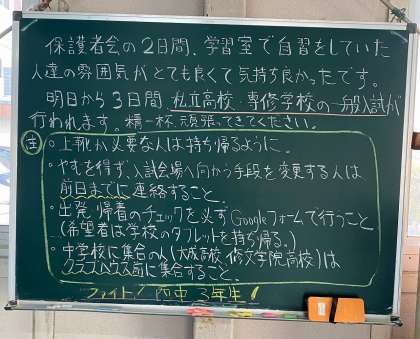 保護者会の2日間、学習室で自習をしていた
人達の雰囲気がとても良くて気持ち良かったです。
明日から3日間、私立高校・専修学校の一般入試が
行われます。精一杯、頑張ってきてください。
注 ・上靴が必要な人は持ち帰るように。
・やむを得ず、入試会場へ向かう手段を変更する人は
前日までに連絡すること。
・出発、帰着のチェックを必ずGoogleフォームで行うこと
(希望者は学校のタブレットを持ち帰る。)
・中学校に集合の人(大成高校、修文学院高校)は
クラブハウス前に集合すること。
ファイト! 西中3年生!